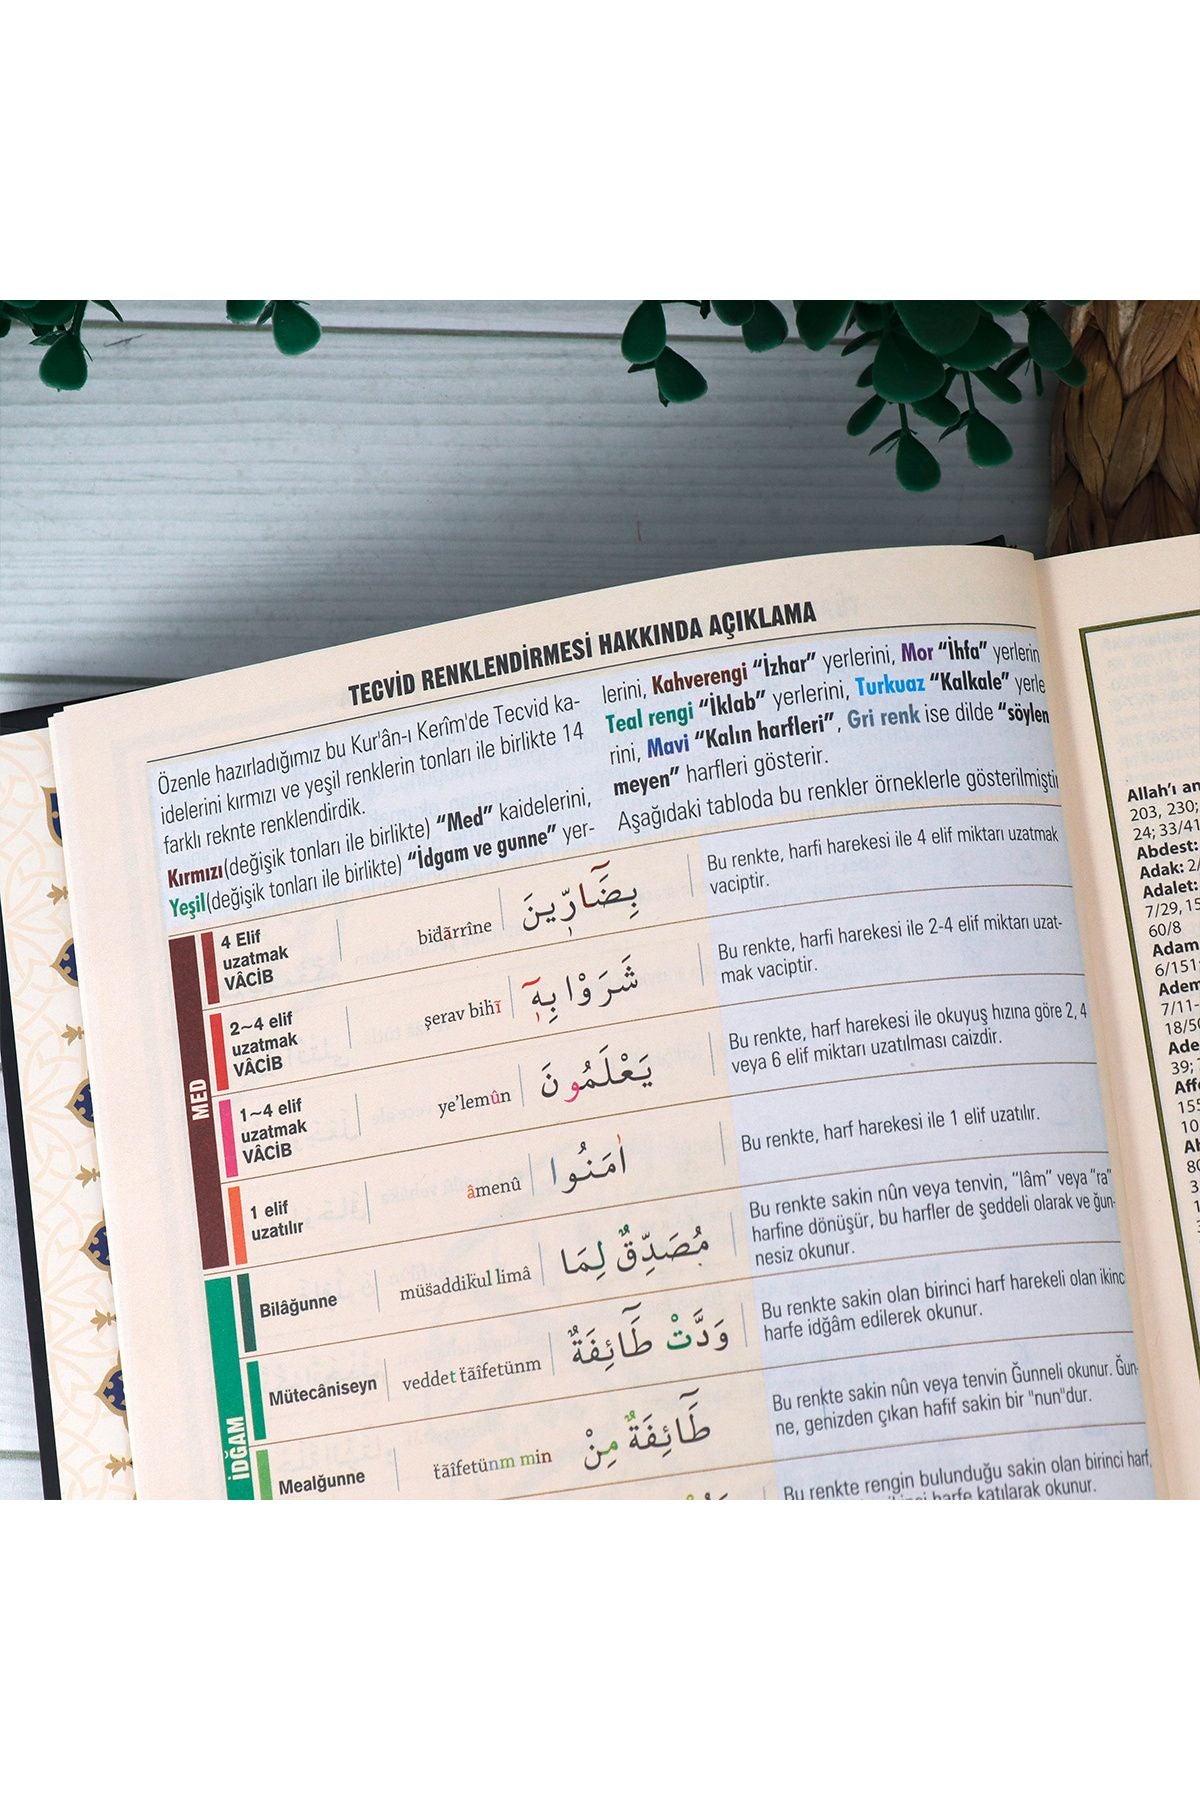 TECVİD RENKLENDİRMESİ HAKKINDA AÇIKLAMA
Özenle hazırladığımız bu Kur'ân-ı Kerîm'de Tecvid ka-
idelerini kırmızı ve yeşil renklerin tonları ile birlikte 14
farklı reknte renklendirdik.
Kırmızı(değişik tonları ile birlikte) “Med” kaidelerini,
Yeşil(değişik tonları ile birlikte) “İdgam ve gunne” yer-
lerini, Kahverengi “İzhar” yerlerini, Mor “İhfa” yerlerin
Teal rengi “İklab” yerlerini, Turkuaz “Kalkale” yerle
rini, Mavi “Kalın harfleri”, Gri renk ise dilde “söylen
meyen” harfleri gösterir.
Aşağıdaki tabloda bu renkler örneklerle gösterilmiştir
MED
4 Elif
uzatmak
VÂCİB
bidārrîne
بِضَٓارّ۪ينَ
Bu renkte, harfi harekesi ile 4 elif miktarı uzatmak
vaciptir.
2~4 elif
uzatmak
VÂCİB
şerav bihī
شَرَوْا بِه۪ٓ
Bu renkte, harfi harekesi ile 2-4 elif miktarı uzat-
mak vaciptir.
1~4 elif
uzatmak
VÂCİB
ye’lemûn
يَعْلَمُونَ
Bu renkte, harf harekesi ile okuyuş hızına göre 2, 4
veya 6 elif miktarı uzatılması caizdir.
1 elif
uzatılır
âmenû
اٰمَنُوا
Bu renkte, harf harekesi ile 1 elif uzatılır.
İDĞAM
Bilâğunne
müsaddikul limâ
مُصَدِّقٌ لِمَا
Bu renkte sakin nûn veya tenvin, “lâm” veya “ra”
harfine dönüşür, bu harfler de şeddeli olarak ve ğun-
nesiz okunur.
Mütecâniseyn
veddet tāîfetünm
وَدَّتْ طَٓائِفَةٌ
Bu renkte sakin olan birinci harf harekeli olan ikinc
harfe idğâm edilerek okunur.
Mealğunne
tāîfetünm min
طَٓائِفَةٌ مِنْ
Bu renkte sakin nûn veya tenvin Ğunneli okunur. Ğun-
ne, genizden çıkan hafif sakin bir "nun"dur.
Bu renkte rengin bulunduğu sakin olan birinci harf,
harfe katılarak okunur.
Allah’ı an
203, 230;
24; 33/41
Abdest:
Adak: 2/
Adalet:
7/29, 15
60/8
Adam
6/151
Adem
7/11-
18/50
Ade
39; 7
Affe
155
10